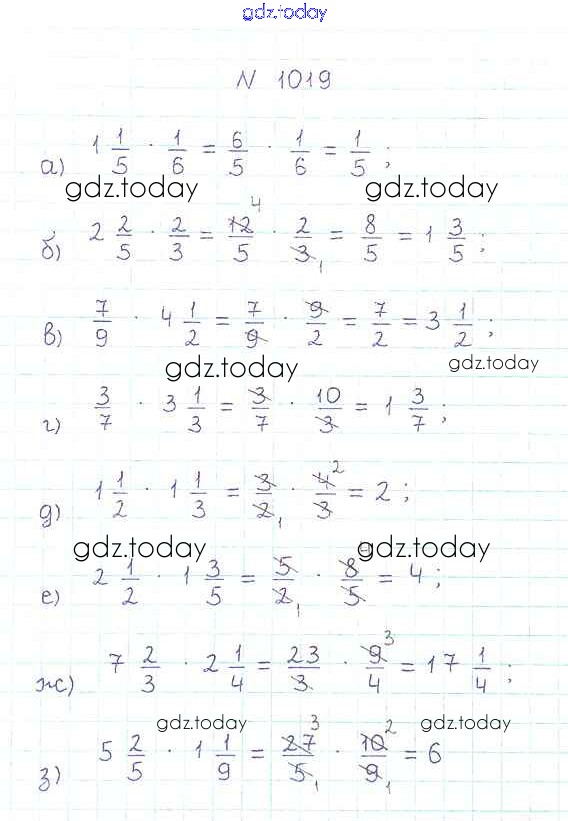 gdz.today
N 1019
а) 1 1/5 · 1/6 = 6/5 · 1/6 = 1/5 ;
gdz.today gdz.today
б) 2 2/5 · 2/3 = 12/5 4 · 2/3 1 = 8/5 = 1 3/5 ;
в) 7/9 · 4 1/2 = 7/9 · 9/2 = 7/2 = 3 1/2 ;
gdz.today gdz.today
г) 3/7 · 3 1/3 = 3/7 · 10/3 = 1 3/7 ;
д) 1 1/2 · 1 1/3 = 3/2 1 · 4 2/3 = 2 ;
gdz.today gdz.today
е) 2 1/2 · 1 3/5 = 5/2 1 · 8 4/5 = 4 ;
ж) 7 2/3 · 2 1/4 = 23/3 · 9 3/4 = 17 1/4 ;
gdz.today gdz.today
з) 5 2/5 · 1 1/9 = 27 3/5 1 · 10 2/9 1 = 6